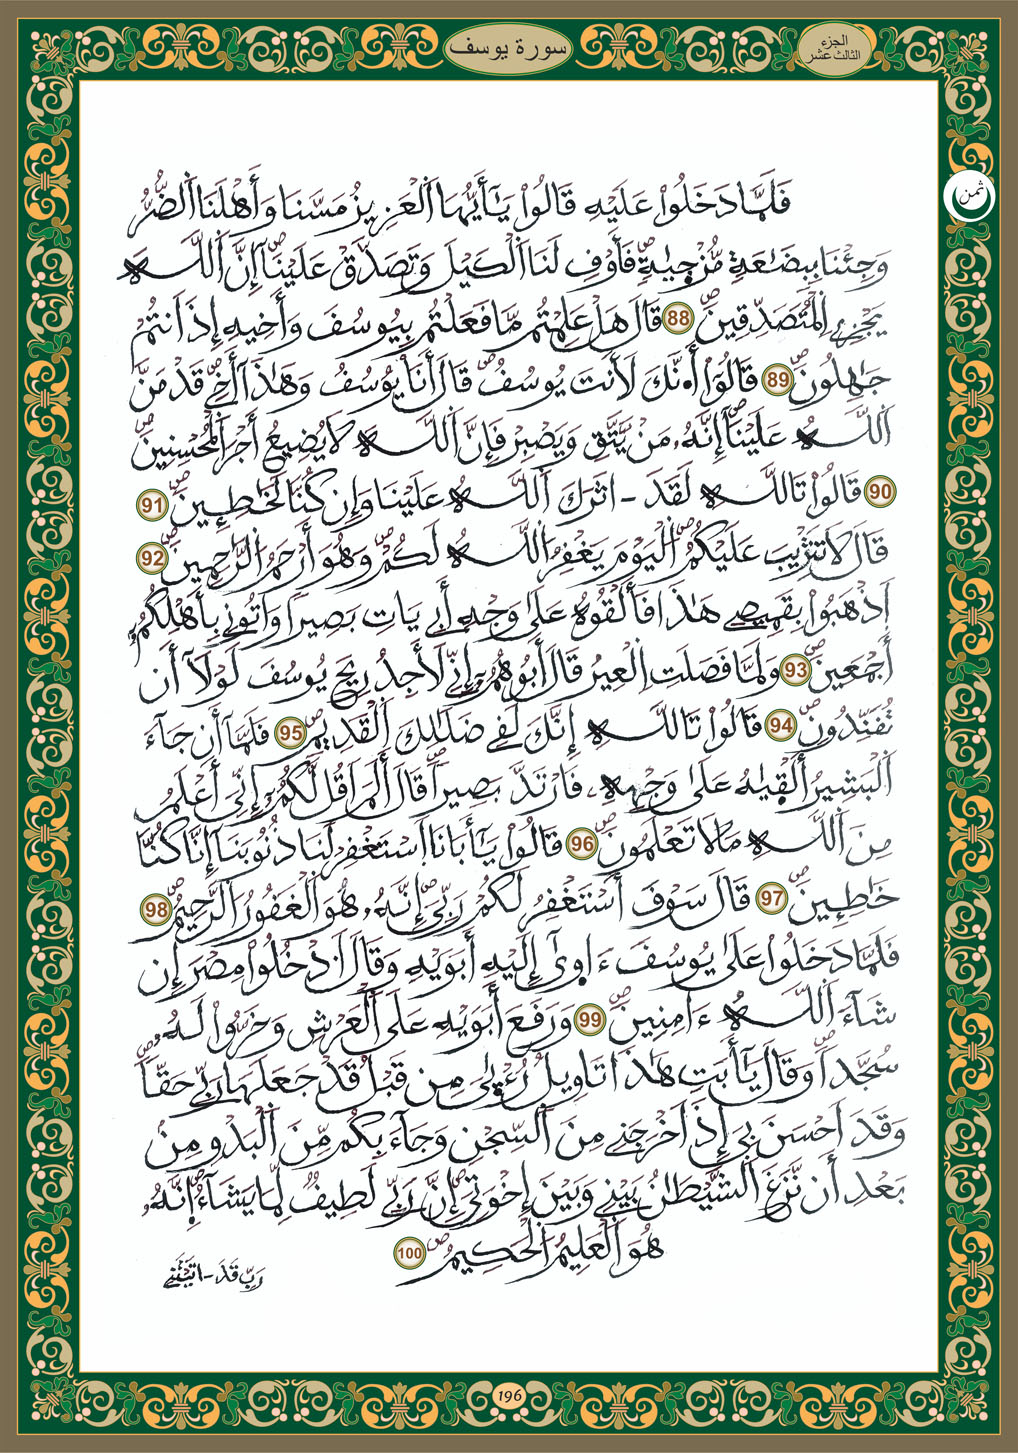 الجزء الثالث عشر
سورة يوسف
ثمن
فَلَمَّا دَخَلُواْ عَلَيْهِ قَالُواْ يَٰٓأَيُّهَا اَ۬لْعَزِيزُ مَسَّنَا وَأَهْلَنَا اَ۬لضُّرُّ
وَجِئْنَا بِبِضَٰعَةٖ مُّزْجَيٰةٖ فَأَوْفِ لَنَا اَ۬لْكَيْلَ وَتَصَدَّقْ عَلَيْنَآ إِنَّ اَ۬للَّهَ
يَجْزِے اِ۬لْمُتَصَدِّقِينَ 88 قَالَ هَلْ عَلِمْتُم مَّا فَعَلْتُم بِيُوسُفَ وَأَخِيهِ إِذَ اَنتُمْ
جَٰهِلُونَ 89 قَالُوٓاْ أَٰ۟نَّكَ لَأَنتَ يُوسُفُ قَالَ أَنَا يُوسُفُ وَهَٰذَآ أَخِے قَدْ مَنَّ
اَ۬للَّهُ عَلَيْنَآ إِنَّهُۥ مَنْ يَّتَّقِ وَيَصْبِرْ فَإِنَّ اَ۬للَّهَ لَا يُضِيعُ أَجْرَ اَ۬لْمُحْسِنِينَ
90 قَالُواْ تَاللَّهِ لَقَدَ ـ اثَرَكَ اَ۬للَّهُ عَلَيْنَا وَإِن كُنَّا لَخَٰطِـِٕينَ 91
قَالَ لَا تَثْرِيبَ عَلَيْكُمُ اُ۬لْيَوْمَ يَغْفِرُ اُ۬للَّهُ لَكُمْ وَهُوَ أَرْحَمُ اُ۬لرَّٰحِمِينَ 92
اَ۪ذْهَبُواْ بِقَمِيصِے هَٰذَا فَأَلْقُوهُ عَلَىٰ وَجْهِ أَبِے يَاتِ بَصِيراٗ وَاتُونِے بِأَهْلِكُمُۥٓ
أَجْمَعِينَ 93 وَلَمَّا فَصَلَتِ اِ۬لْعِيرُ قَالَ أَبُوهُمُۥٓ إِنِّے لَأَجِدُ رِيحَ يُوسُفَ لَوْلَآ أَن
تُفَنِّدُونِ 94 قَالُواْ تَاللَّهِ إِنَّكَ لَفِے ضَلَٰلِكَ اَ۬لْقَدِيمِ 95 فَلَمَّآ أَن جَآءَ
اَ۬لْبَشِيرُ أَلْقَيٰهُ عَلَىٰ وَجْهِهِۦ فَارْتَدَّ بَصِيراٗ قَالَ أَلَمَ اَقُل لَّكُمُۥٓ إِنِّيَ أَعْلَمُ
مِنَ اَ۬للَّهِ مَا لَا تَعْلَمُونَ 96 قَالُواْ يَٰٓأَبَانَا اَ۪سْتَغْفِرْ لَنَا ذُنُوبَنَآ إِنَّا كُنَّا
خَٰطِـِٕينَ 97 قَالَ سَوْفَ أَسْتَغْفِرُ لَكُمْ رَبِّيَ إِنَّهُۥ هُوَ اَ۬لْغَفُورُ اُ۬لرَّحِيمُ 98
فَلَمَّا دَخَلُواْ عَلَىٰ يُوسُفَ ءَاو۪يٰٓ إِلَيْهِ أَبَوَيْهِ وَقَالَ اَ۟دْخُلُواْ مِصْرَ إِن
شَآءَ اَ۬للَّهُ ءَامِنِينَ 99 وَرَفَعَ أَبَوَيْهِ عَلَى اَ۬لْعَرْشِ وَخَرُّواْ لَهُۥ
سُجَّداٗ وَقَالَ يَٰٓأَبَتِ هَٰذَا تَاوِيلُ رُءْيَٰيَ مِن قَبْلُ قَدْ جَعَلَهَا رَبِّے حَقّاٗ
وَقَدَ اَحْسَنَ بِيَ إِذَ اَخْرَجَنِے مِنَ اَ۬لسِّجْنِ وَجَآءَ بِكُم مِّنَ اَ۬لْبَدْوِ مِنۢ
بَعْدِ أَن نَّزَغَ اَ۬لشَّيْطَٰنُ بَيْنِے وَبَيْنَ إِخْوَتِيَ إِنَّ رَبِّے لَطِيفٞ لِّمَا يَشَآءُ اِنَّهُۥ
هُوَ اَ۬لْعَلِيمُ اُ۬لْحَكِيمُ 100
رَبِّ قَدَ ـ اتَيْتَنِے
196